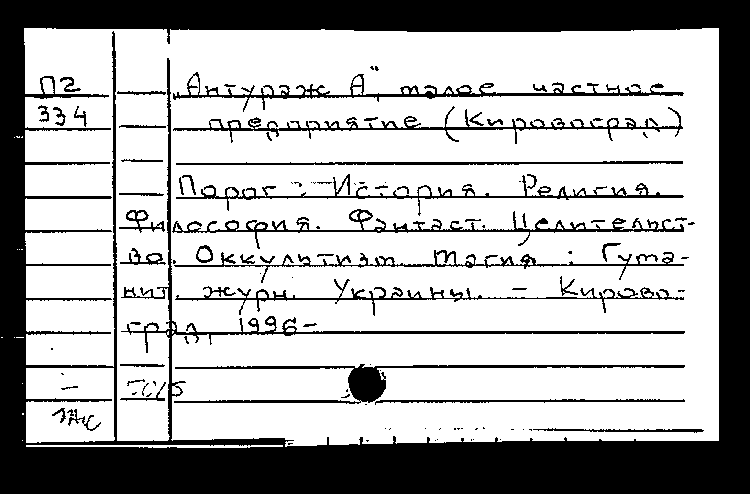 П2 „Антураж А", малое частное
334 предприятие (Кировоград)
Порог : История. Религия.
Философия. Фантаст. Целительст-
во. Оккультизм. Магия : Гума-
нит. журн. Украины. – Кирово-
град, 1996–